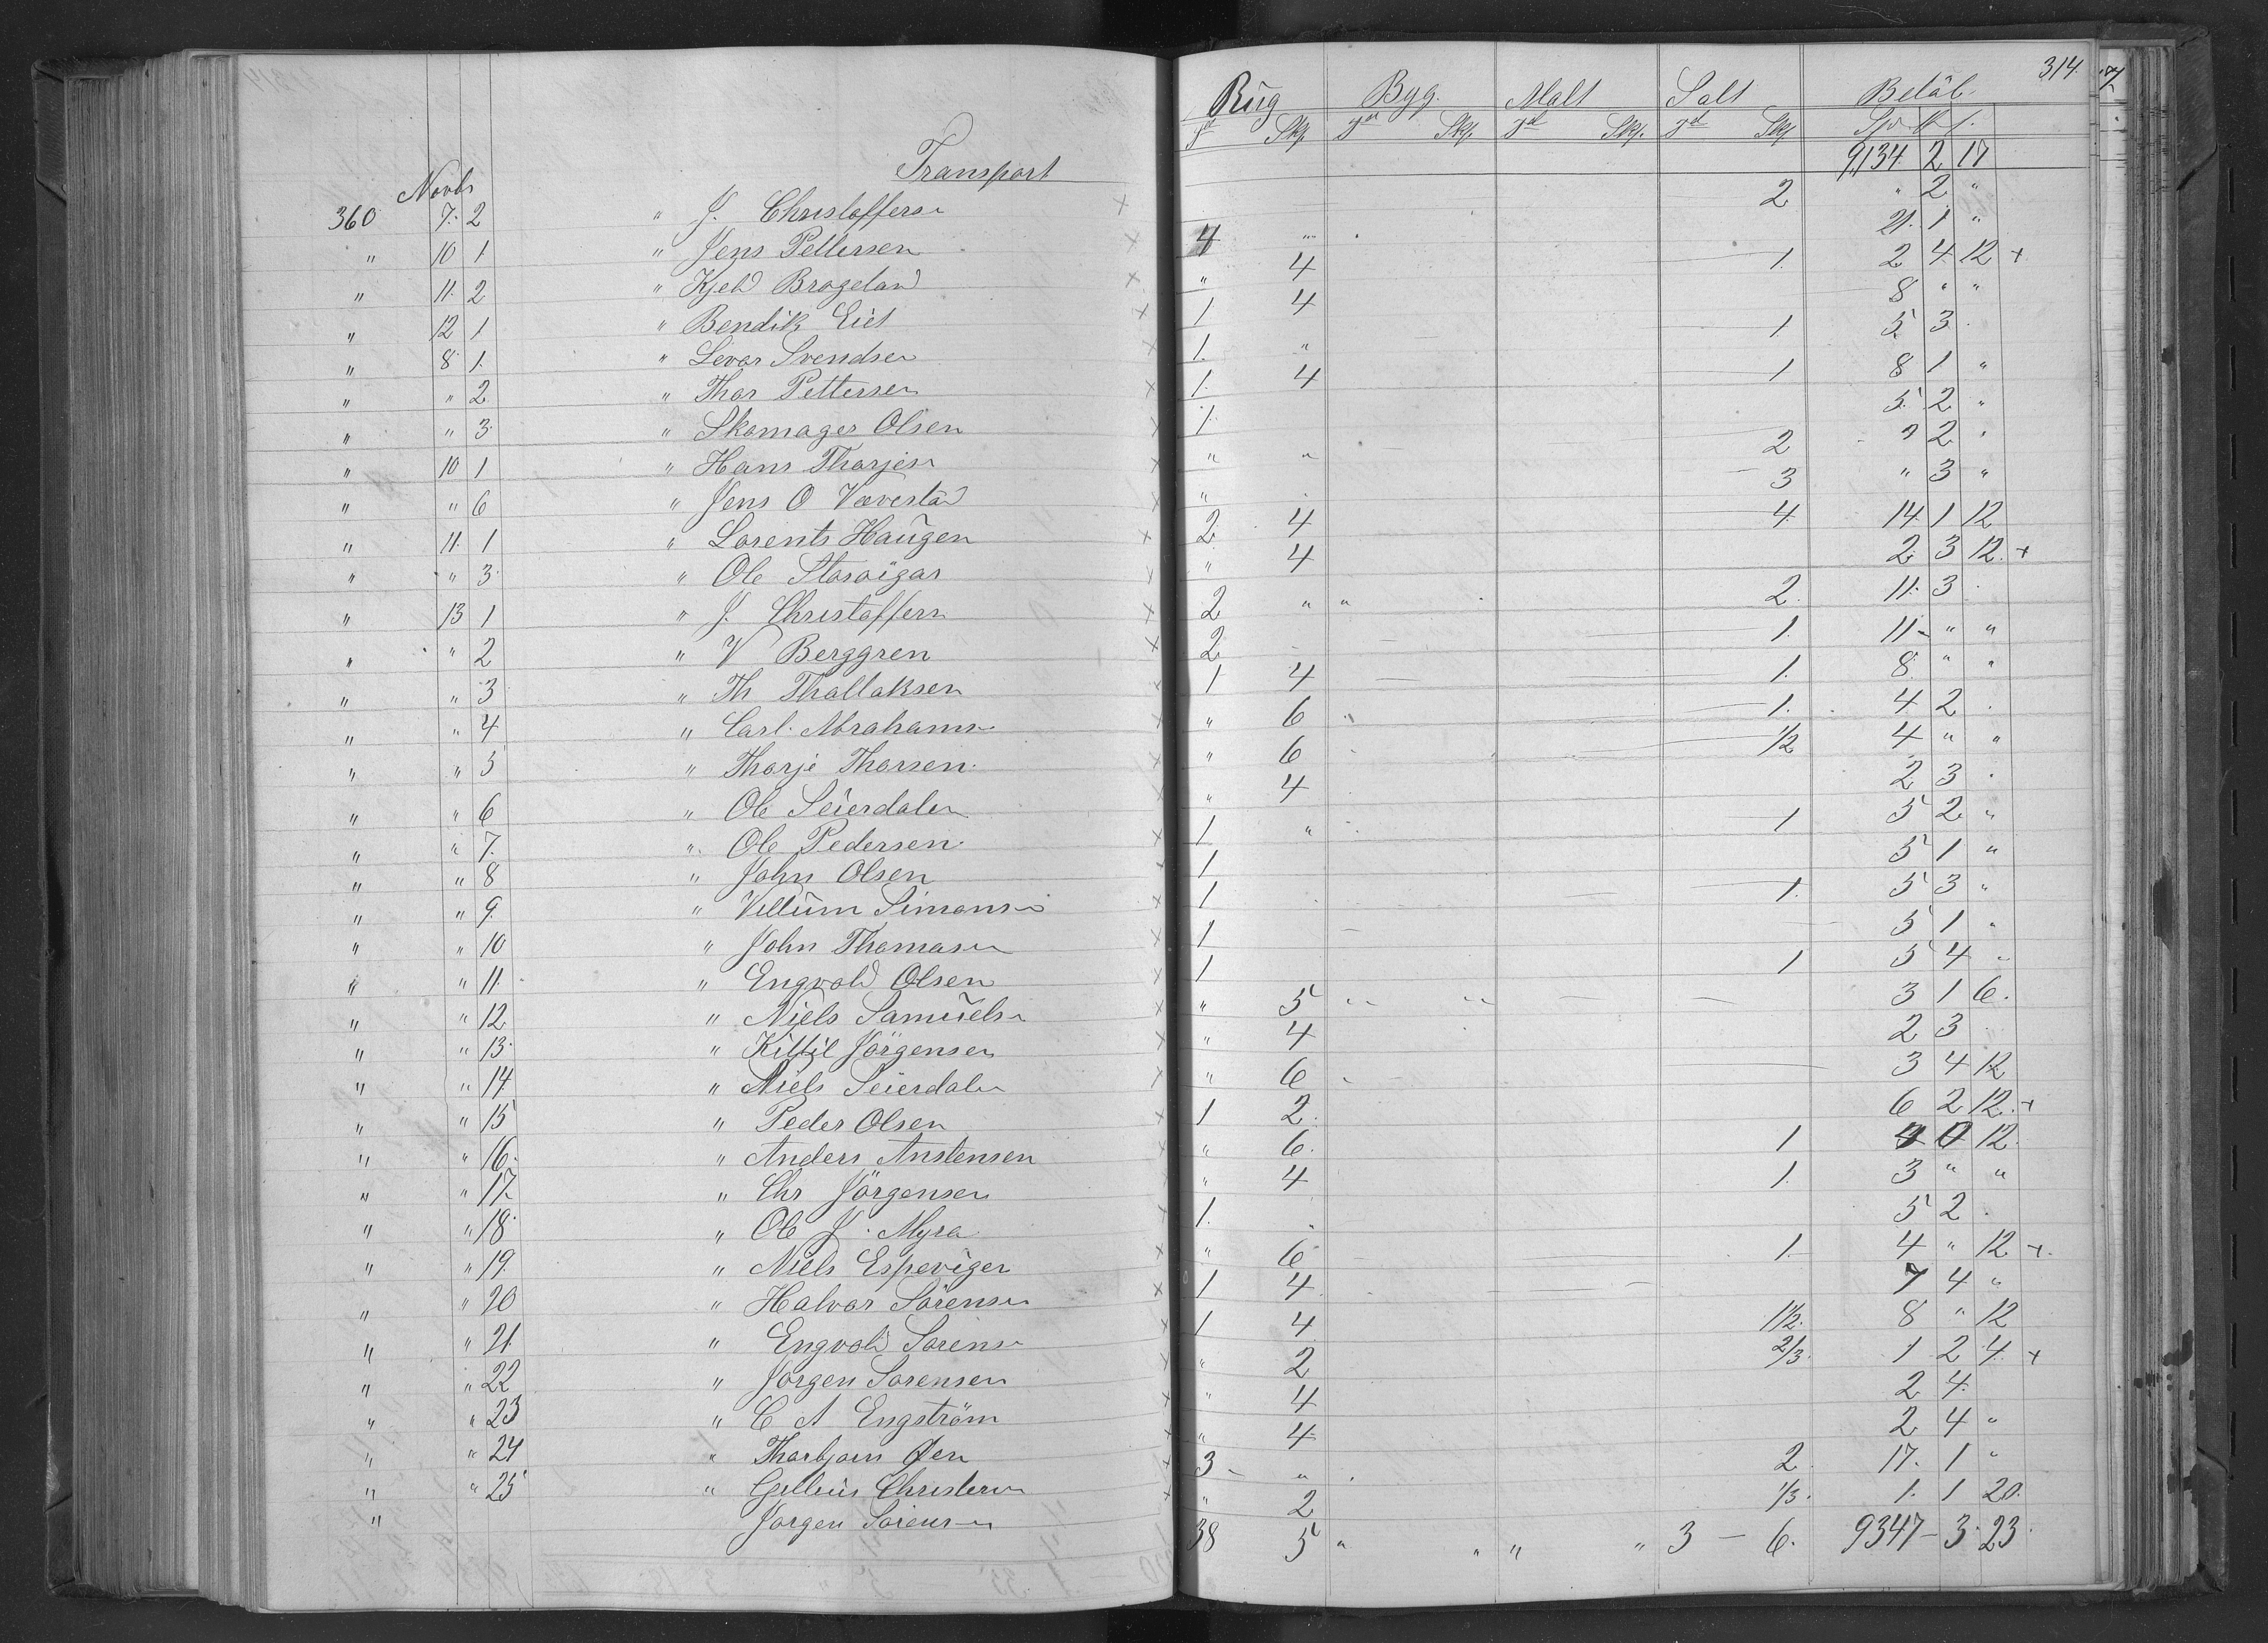 Transport
Novbr
360 7. 2 " J. Christoffers
" 10 1 " Jens Pettersen
" 11. 2 " Kjeld Brageland
" 12 1 " Bendik Eiet
" 8 1. " Levor Svendsen
" " 2 " Thor Pettersen
" " 3 " Skomager Olsen
" 10 1 " Hans Thorjes
" " 6 " Jens O Væverstad
" 11. 1 " Lorents Haugen
" " 3. " Ole
" 13 1 " J. Christoffers
" " 2 " V Berggren
" " 3 " Th Thallaksen
" " 4 " Carl Abrahams
" " 5 " Thorje Thorsen
" " 6 " Ole Seierdalen
" " 7. " Ole Pedersen
" " 8 " John Olsen
" " 9. " Villum Simons
" " 10 " John Thomasen
" " 11. " Engvold Olsen
" " 12 " Niels Samuels
" " 13. " Kittil Jörgensen
" " 14 " Niels Seierdalen
" " 15 " Peder Olsen
" " 16. " Anders Anstensen
" " 17. " Chr Jörgensen
" " 18. " Ole J. Myra
" " 19. " Niels Espeviger
" " 20 " Halvor Sörensen
" " 21. " Engvold Sorens
" " 22 " Jorgen Sorensen
" " 23 " C A Engström
" " 24 " Thorbjorn Øen
" " 25 " Gellius Christens
" Jorgen Sorens
314.
Rug Byg. Malt Salt Belöb
Td Skp. Td Skp. Td Skp. Td Skp
9,134 2 17
2 " 2 "
4 " 21. 1 "
" 4 1. 2 4 12 +
1 4 8 " "
1. " 1 5 3
1. 4 1 8 1 "
1. 5 2 "
" " 2 " 2 "
" 3 " 3 "
2 4 4 14 1 12
" 4 2 3 12. +
2 " " 2. 11. 3
2 1. 11 " "
1 4 1. 8 " "
" 6 1. 4 2
" 6 1/2 4 " "
" 4 2 3
1 " 1 5 2 "
1 5 1 "
1 1. 5 3 "
1 5 1 "
1 1 5 4
" 5 3 1 6.
" 4 2 3
" 6 3 4 12
1 2 6 2 12. +
" 6. 1 4 0 12.
" 4 1. 3 " "
1. 5 2
" 6 1. 4 " 12 +
1 4 7 4 "
1 4 1 1/2. 8 " 12
" 2 2/3. 1 2 4. +
" 4 2 4.
" 4 2 4 "
3 " 2 17. 1 "
" 2 1/3. 1. 1 20.
38 5 " " " " 3 - 6. 9347 - 3. 23.